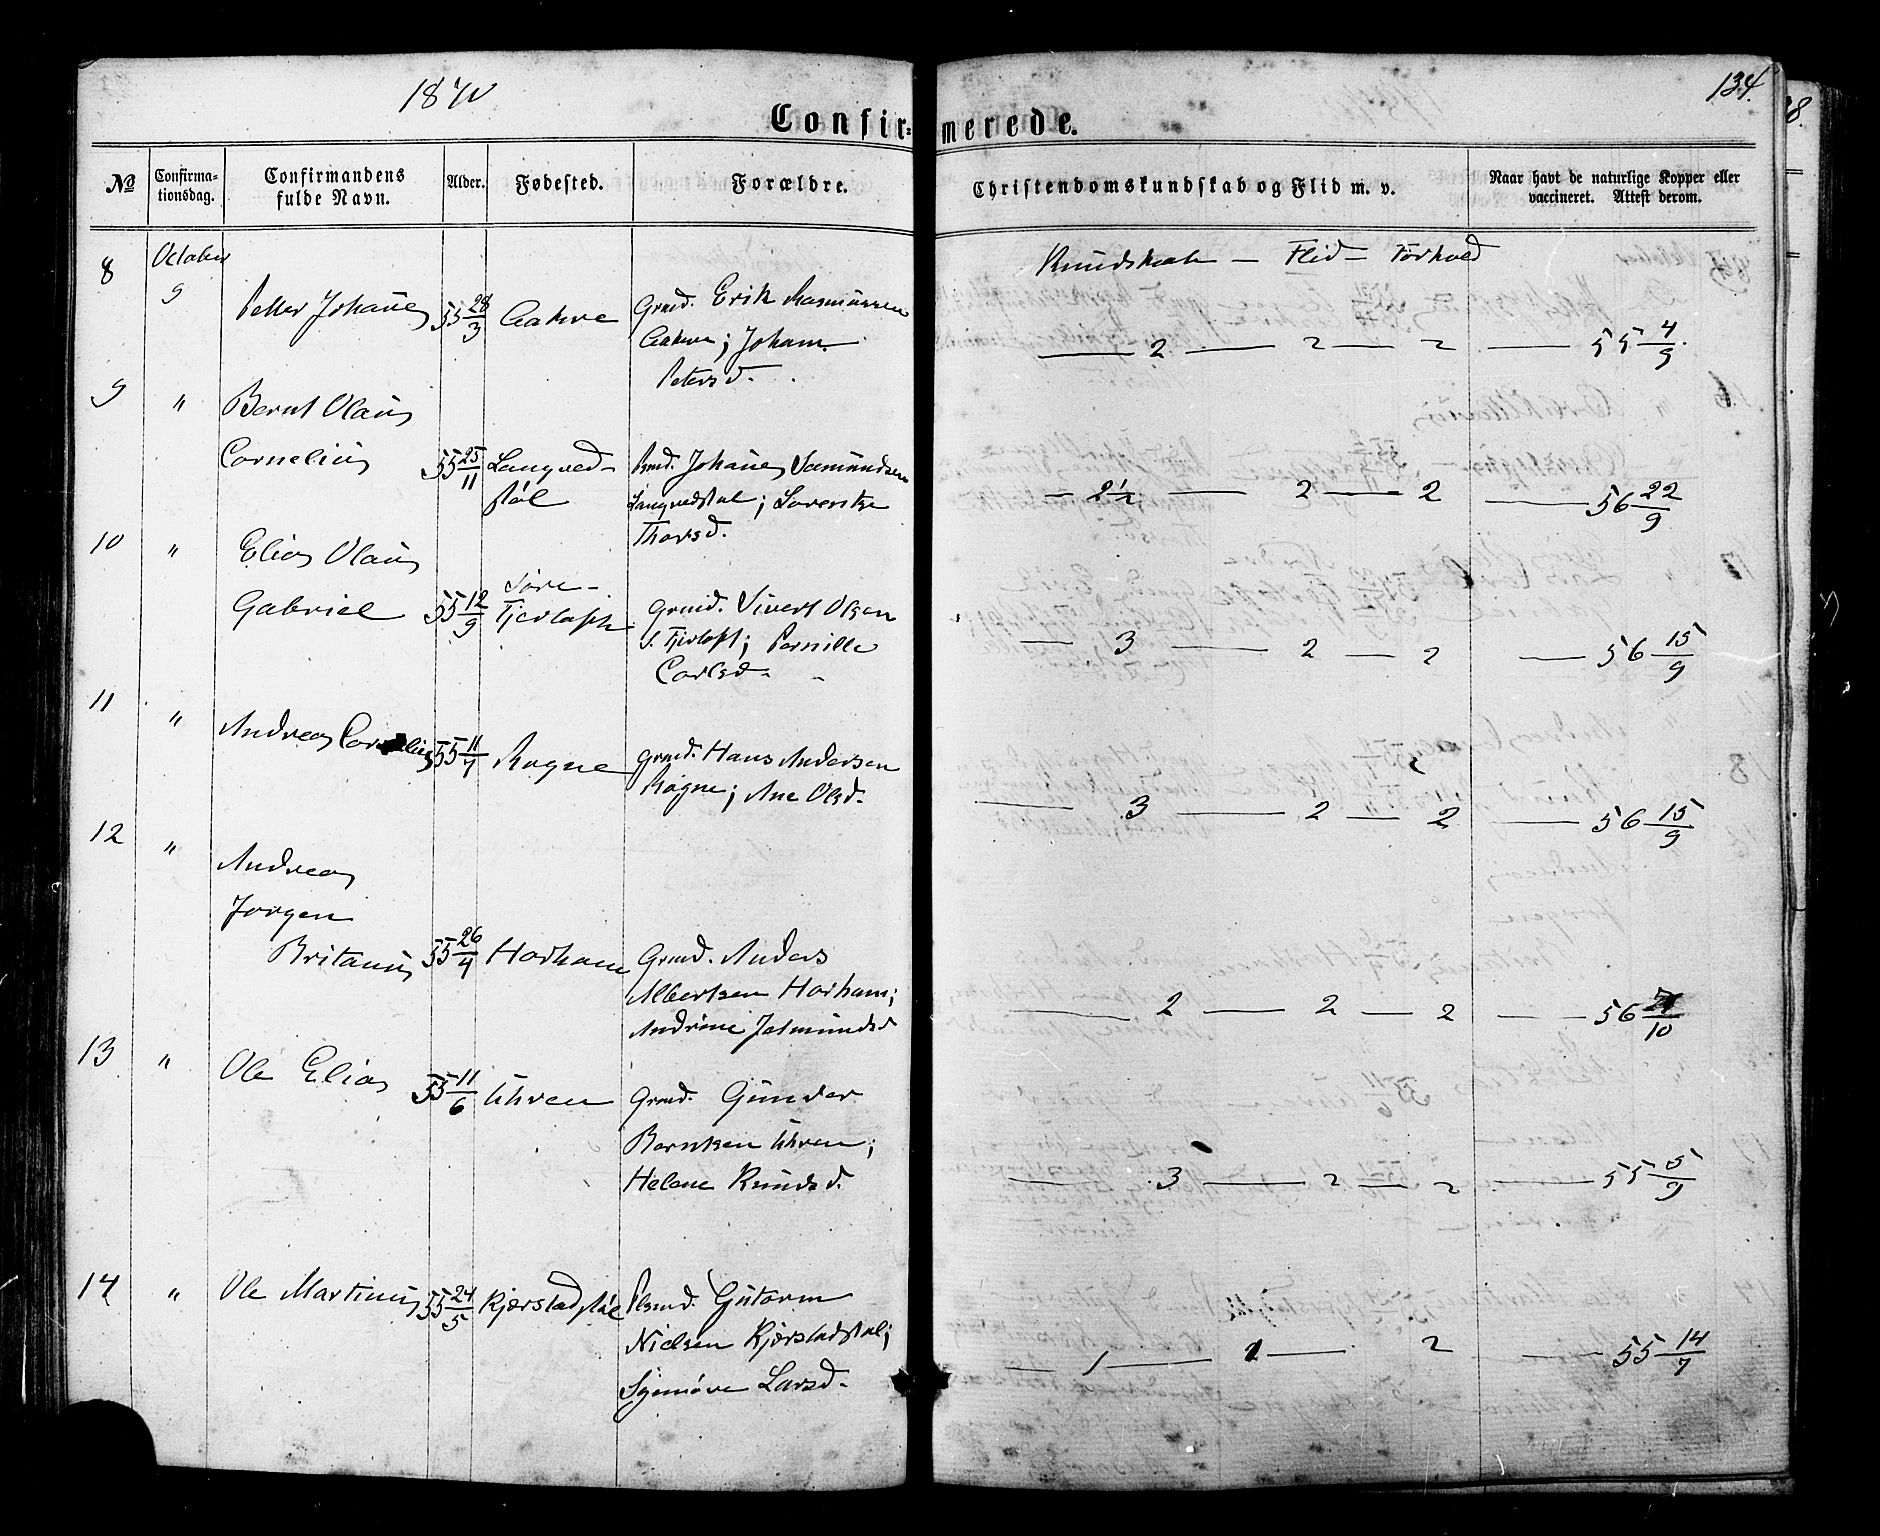 1870
134.
Confirmerede.
No
Confirmationsdag.
Confirmandens fulde Navn.
Alder.
Fødested.
Forældre.
Christendomskundskab og Flid m. v.
Naar havt de naturlige Kopper eller vaccineret. Attest derom.
Kundskab — Flid — Forhold
8 October 9 Petter Johannes 55 28/3 Aakre Grmd. Erik Rasmussen
Aakre; Johan.
Petersd. — 2 — 2 — 2 — 55 4/9.
9 " Bernt Olaus
Cornelius 55 25/11 Longved-
støl Pmd. Johannes Samundsen
Longvedstøl; Lorentse
Thorsd. — 2½ — 2 — 2 — 56 22/9
10 " Elias Olaus
Gabriel 55 12/9 Søre-
Fjertoft Grmd. Sivert Olsen
S. Fjertoft; Pernille
Carlsd. — 3 — 2 — 2 — 56 15/9
11 " Andreas Cornelius 55 11/7 Rogne Grmd. Hans Andersen
Rogne; Ane Olsd. — 3 — 2 — 2 — 56 15/9
12 " Andreas
Jørgen
Britanus 55 26/4 Harham Grmd. Anders
Albertsen Harham;
Andrine Jetmundsd — 2 — 2 — 2 — 56 /10
13 " Ole Elias 55 11/6 Uhren Grmd. Gunder
Berntsen Uhren;
Helene Knudsd. — 3 — 2 — 2 — 55 5/9
14 " Ole Martinus 55 24/5 Kjerstadstøl Plsmd. Gutorm
Nielsen Kjerstadstøl;
Synnøve Larsd. — 1 — 2 — 2 — 55 14/7